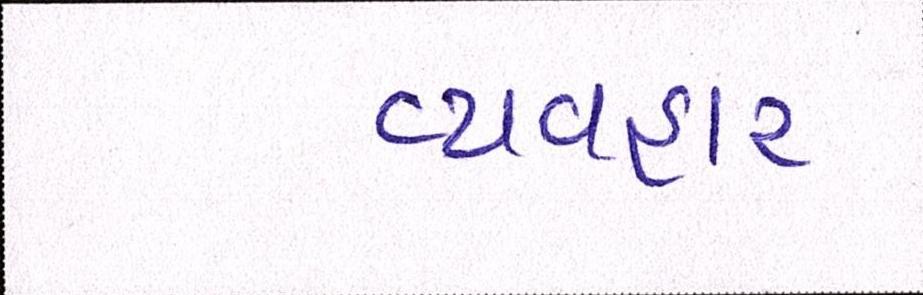 વ્યવહાર